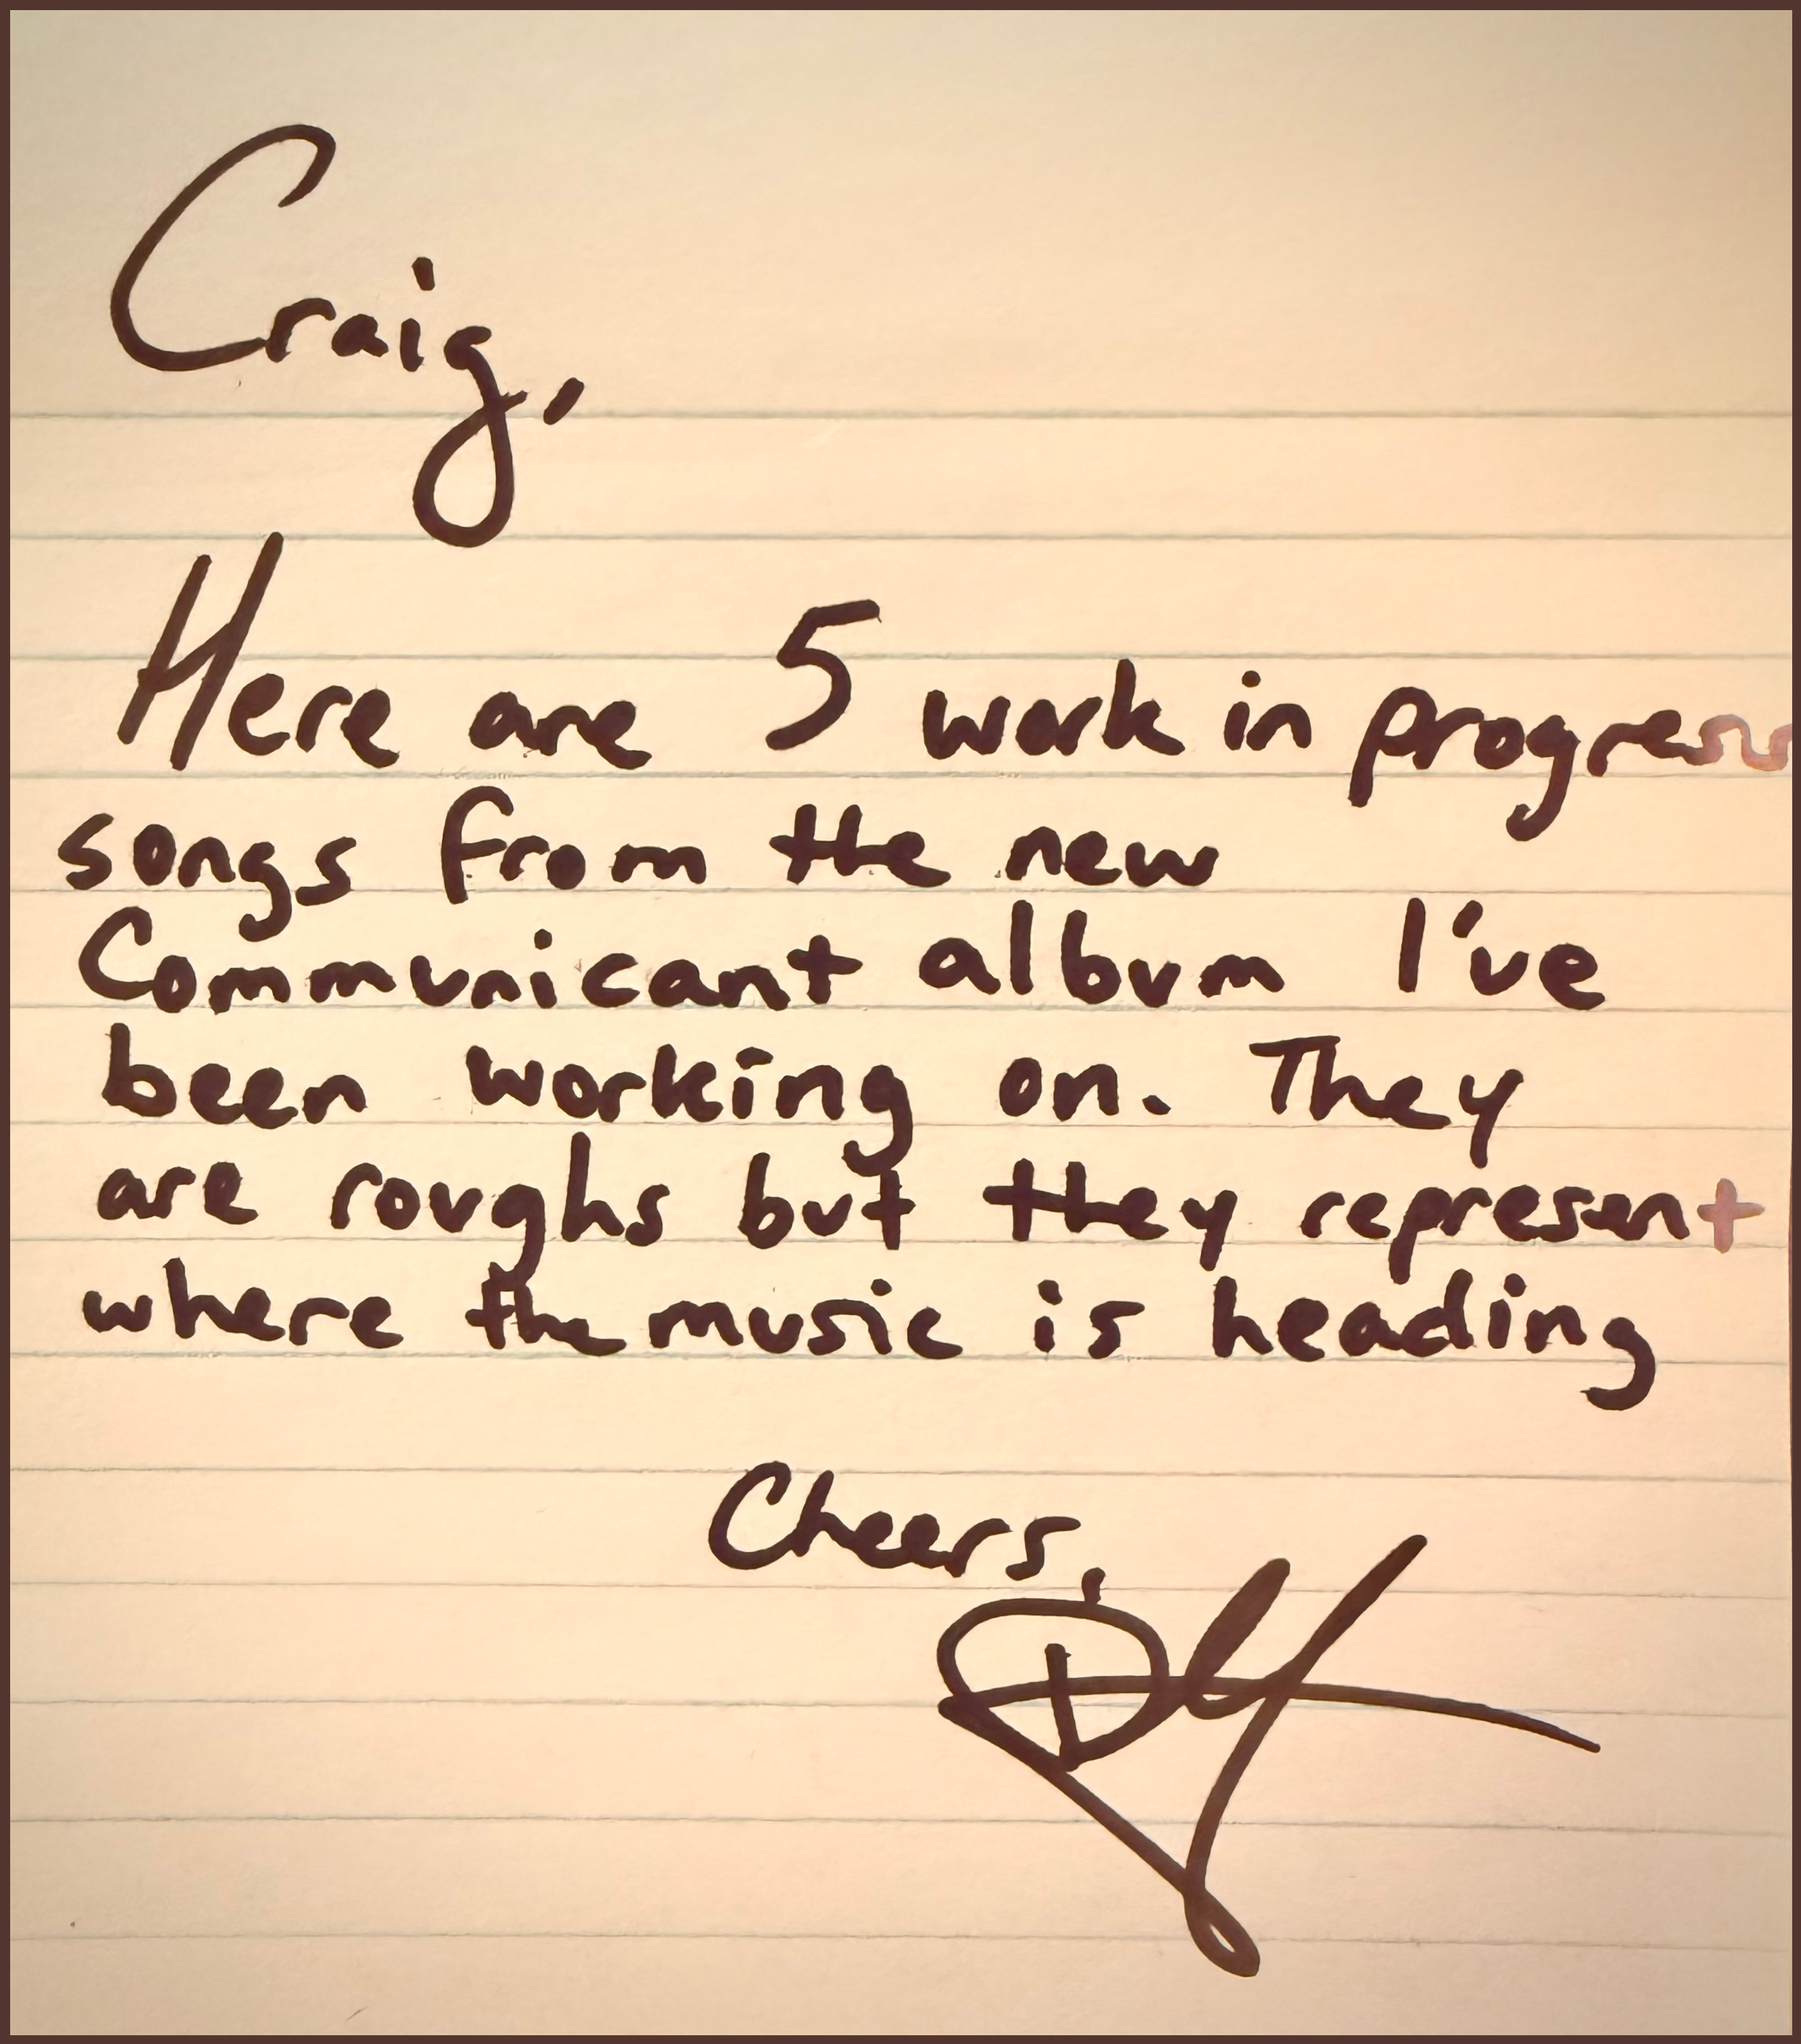 Craig,
Here are 5 work in progress
songs from the new
Communicant album I've
been working on. They
are roughs but they represent
where the music is heading
Cheers,